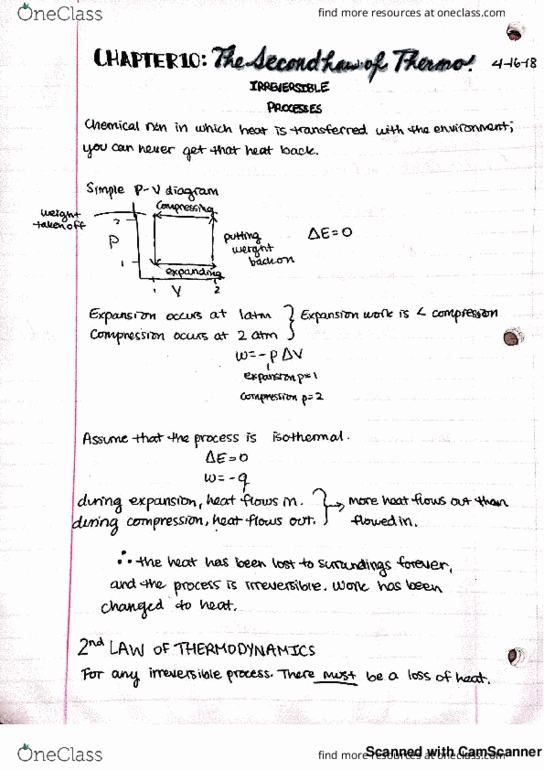 OneClass
find more resources at oneclass.com
CHAPTER 10: The Second Law of Thermo! 4-16-18
IRREVERSIBLE
PROCESSES
Chemical rxn in which heat is transferred with the environment;
you can never get that heat back.
Simple P-V diagram
weight
taken off
compressing
2
P
1
expanding
1 V 2
putting
weight
back on
ΔE=0
Expansion occurs at 1atm
Compression occurs at 2 atm
Expansion work is < compression
w=-pΔV
expansion p=1
compression p=2
Assume that the process is isothermal.
ΔE=0
w=-q
during expansion, heat flows in.
during compression, heat flows out.
more heat flows out than
flowed in.
∴ the heat has been lost to surroundings forever,
and the process is irreversible. Work has been
changed to heat.
2nd LAW OF THERMODYNAMICS
For any irreversible process. There must be a loss of heat.
OneClass
find more resources at oneclass.com
Scanned with CamScanner